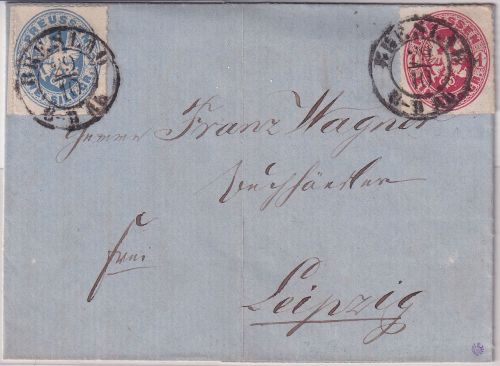 PREUSSEN
BRESLAU
BRESLAU
Herrn Franz Wagner
Buchhändler
frei
Leipzig